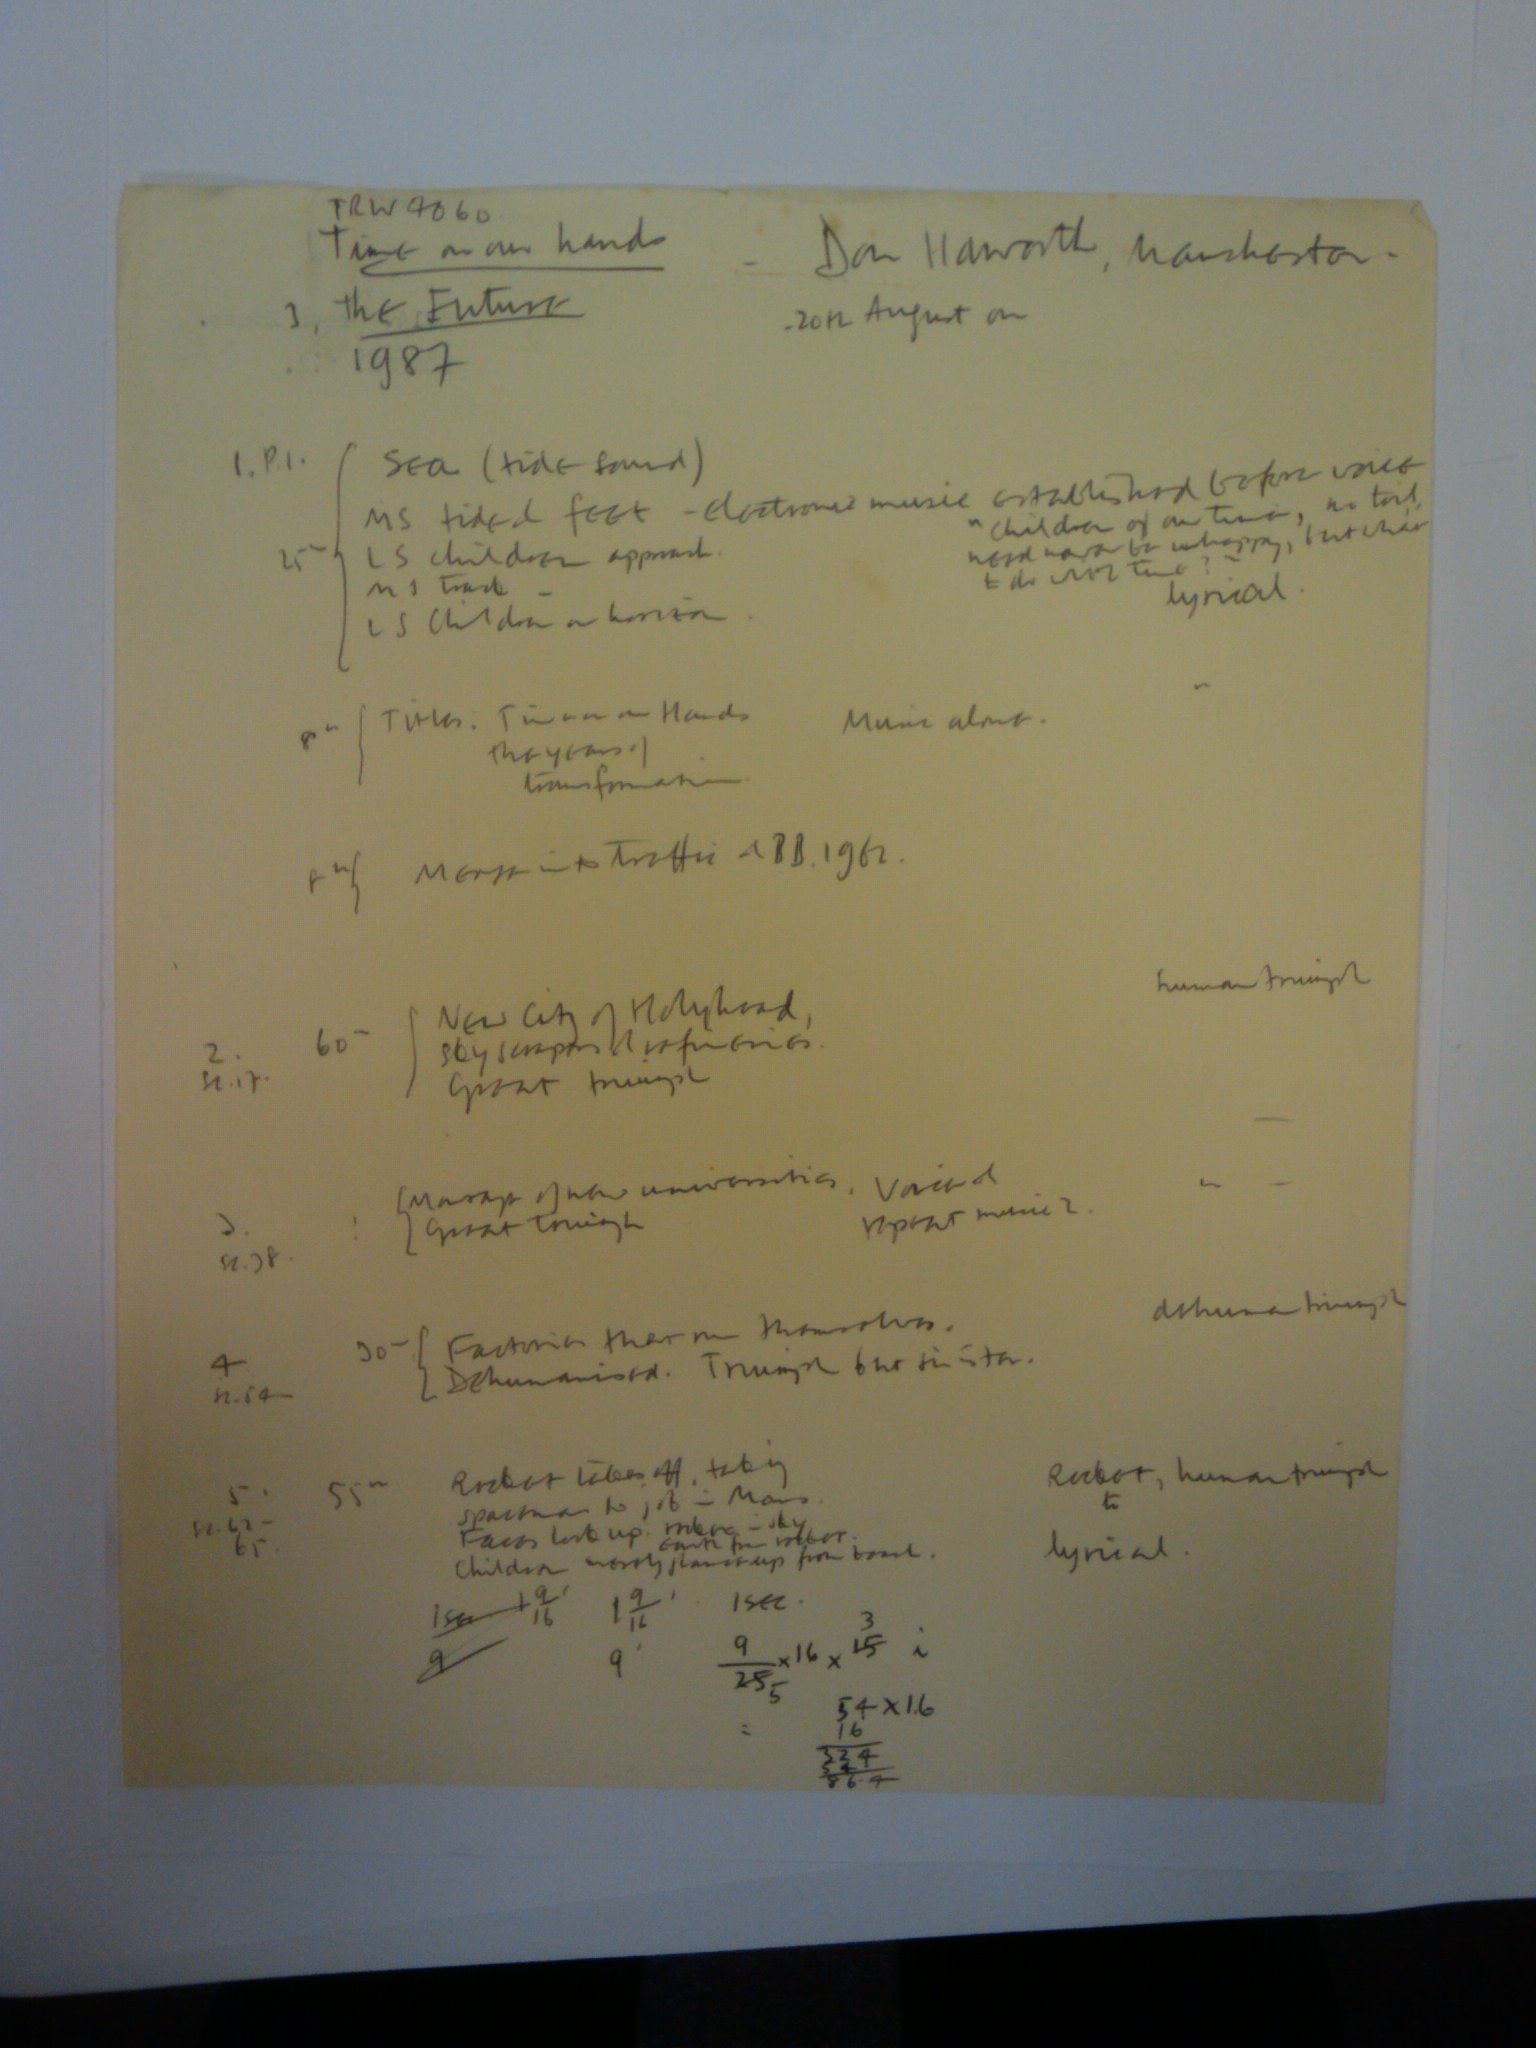 TRW 4060
Time on our hands - Don Haworth, Manchester.
3, The Future - 20th August on
1987
1. P.1. Sea (tide sound)
MS tided feet - electronic music established before voice
"Children of our time, no toil,
need never be unhappy, but what
to do with time?"
25" LS children approach.
MS track -
LS Children on horizon.
lyrical.
8" Titles: Time on our Hands Music alone. "
the years of
transformation.
8" Merge into traffic BB. 1962.
human triumph
2. 60" New City of Holyhead,
sc.17. skyscrapers & refineries.
Great triumph
3. Montage of new universities. Varied " -
sc.38. Great triumph repeat music 2.
dehuman triumph
4 30" Factories that run themselves.
sc.54 Dehumanised. Triumph but sinister.
5. 55" Rocket takes off, taking Rocket, human triumph
sc.62- spaceman to job in Mars. to
65. Faces look up. rocket in sky lyrical.
earth from rocket.
Children merely glance up from beach.
1 sec 1 9/16' 1 9/16' 1 sec.
9 9' 9/25 5 x 16 x 15 3
= 54 x 1.6
16
324
54
864